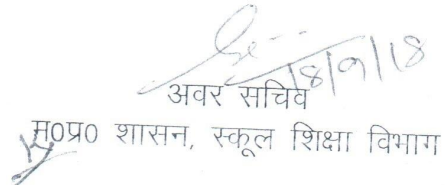 18/9/18
अवर सचिव
म०प्र० शासन, स्कूल शिक्षा विभाग